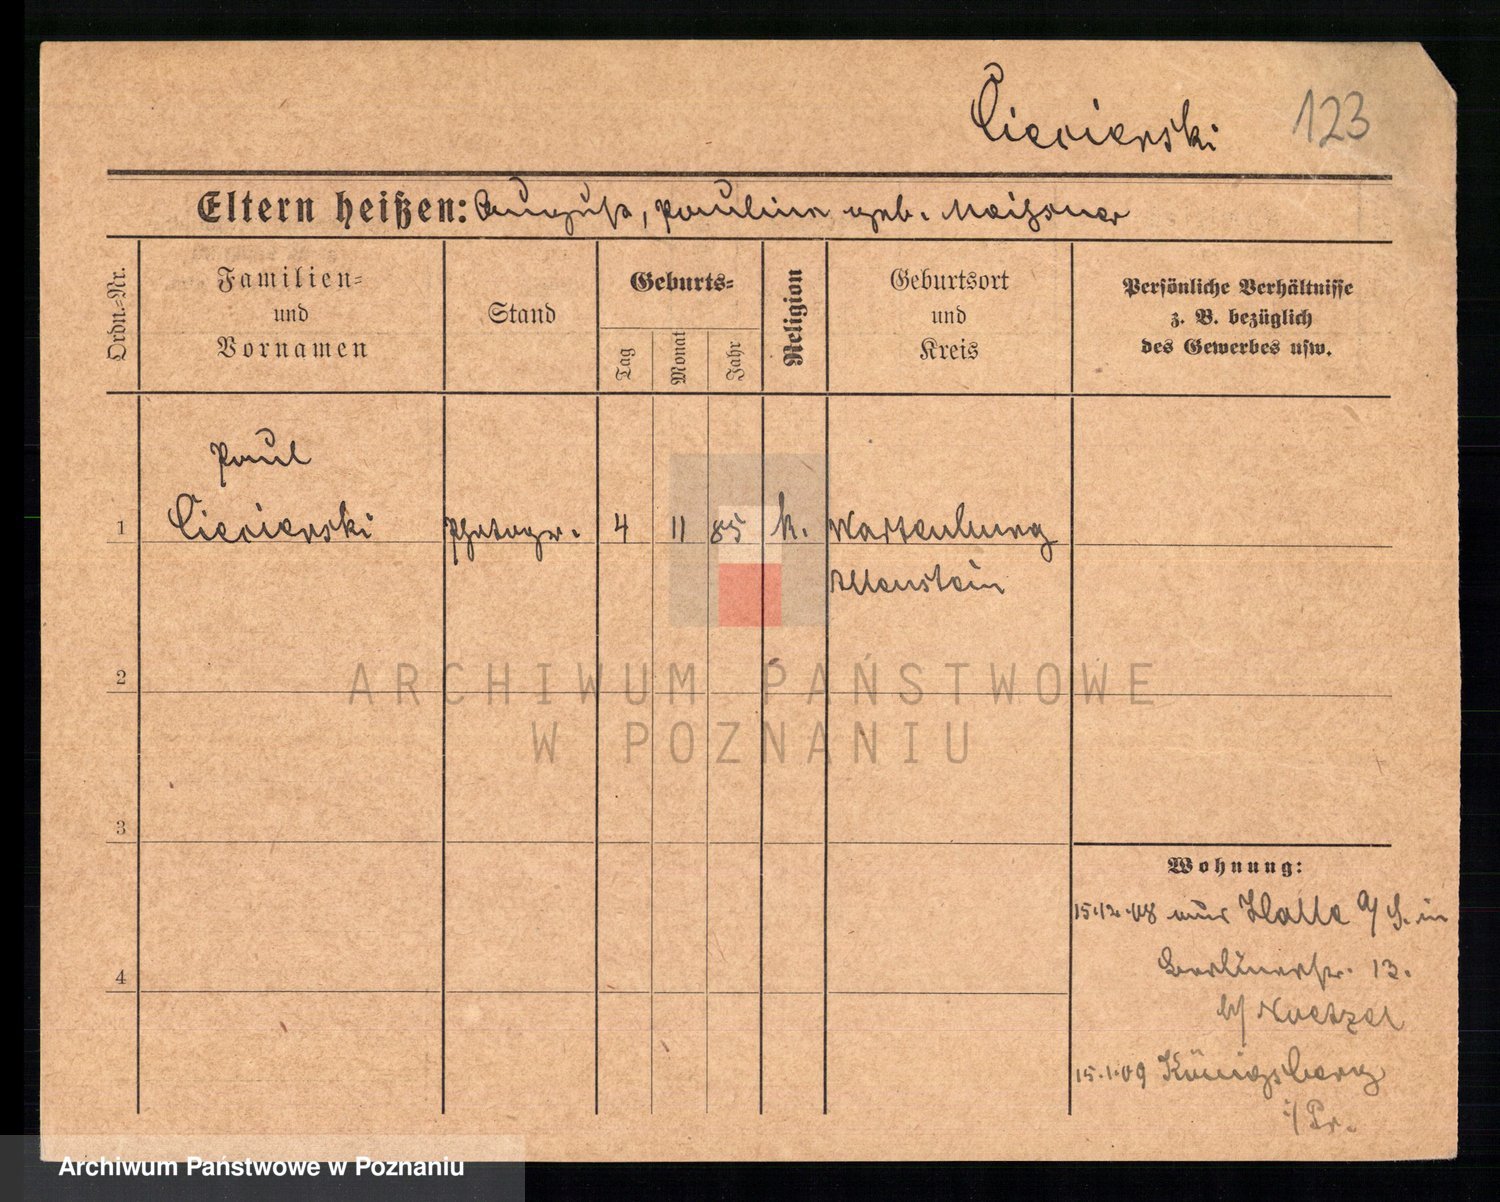 Ciecierski 123
Eltern heißen: August, Pauline geb. Meißner
Ordn.=Nr.
Familien=
und
Vornamen
Stand
Geburts=
Tag
Monat
Jahr
Religion
Geburtsort
und
Kreis
Persönliche Verhältnisse
z. B. bezüglich
des Gewerbes usw.
Paul
1 Ciecierski Photogr. 4 11 85 k. Wartenburg
Allenstein
2
ARCHIWUM PAŃSTWOWE
W POZNANIU
3
Wohnung:
15.12.08 aus Halle a/S. in
4 Berlinerstr. 13.
b/
15.1.09 Königsberg
i/Pr.
Archiwum Państwowe w Poznaniu